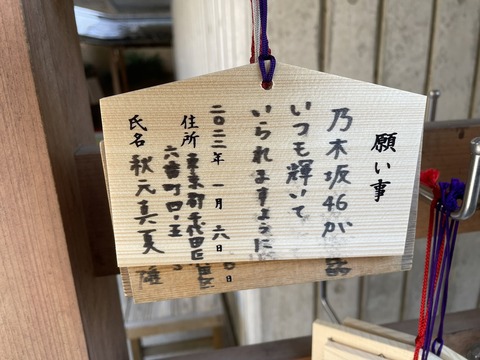 願い事
乃木坂46が
いつも輝いて
いられますように
二〇二二年 一月 六日
住所
東京都千代田区
六番町四・五
氏名 秋元真夏